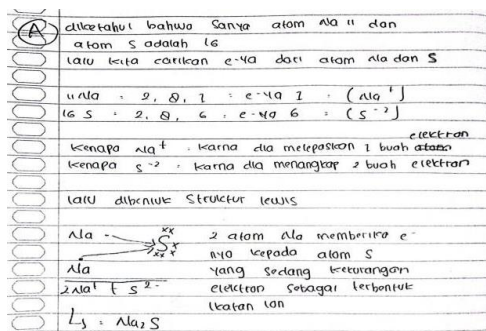 A
diketahui bahwa Sanya atom Na 11 dan
atom S adalah 16
lalu kita carikan e-ya dari atom Na dan S
11 Na : 2, 8, 1 : e-ya 1 : (Na⁺)
16 S : 2, 8, 6 : e-ya 6 : (S⁻²)
Kenapa Na⁺ : karna dia melepaskan 1 buah elektron
Kenapa S⁻² : karna dia menangkap 2 buah elektron
lalu dibentuk Struktur lewis
Na S 2 atom Na memberika e⁻
nyo kepada atom S
Na yang sedang kekurangan
2Na⁺ + S²⁻ elektron sebagai terbentuk
ikatan ion
Ls : Na₂S